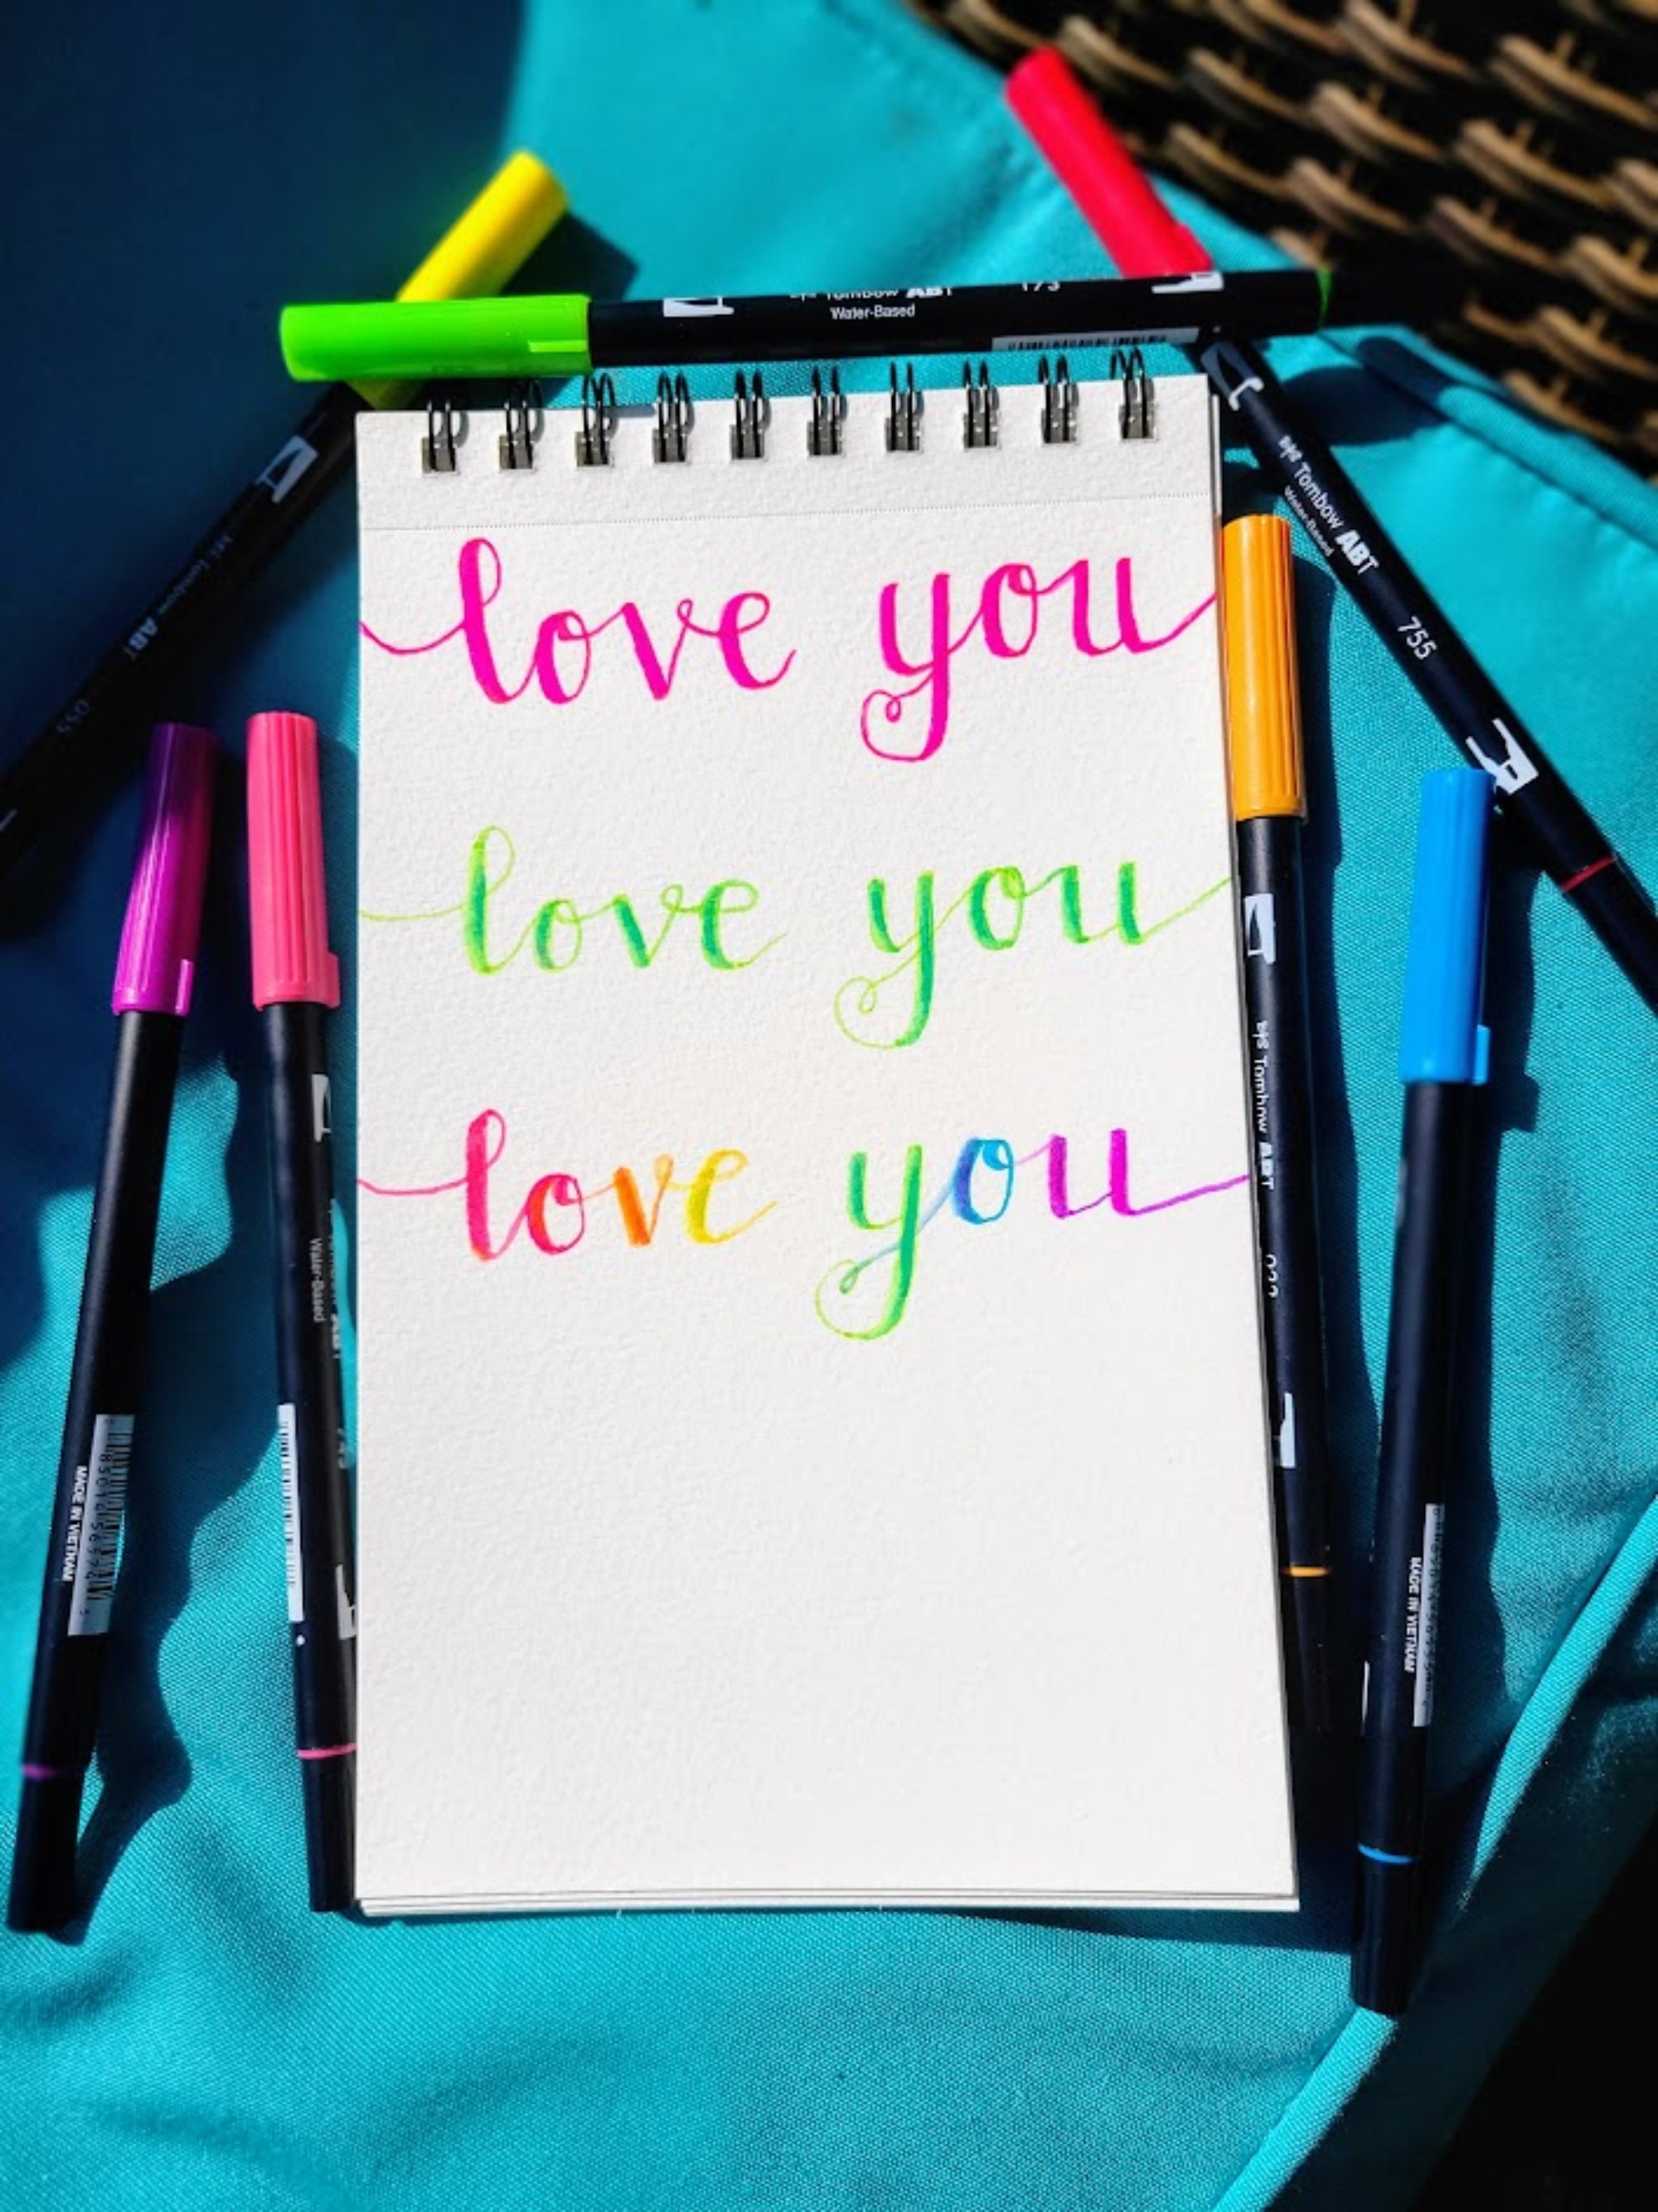 Tombow ABT 173
Water-Based
Tombow ABT 755
Water-Based
Tombow ABT 055
love you
love you
love you
Tombow ABT
Water-Based
MADE IN VIETNAM
MADE IN VIETNAM